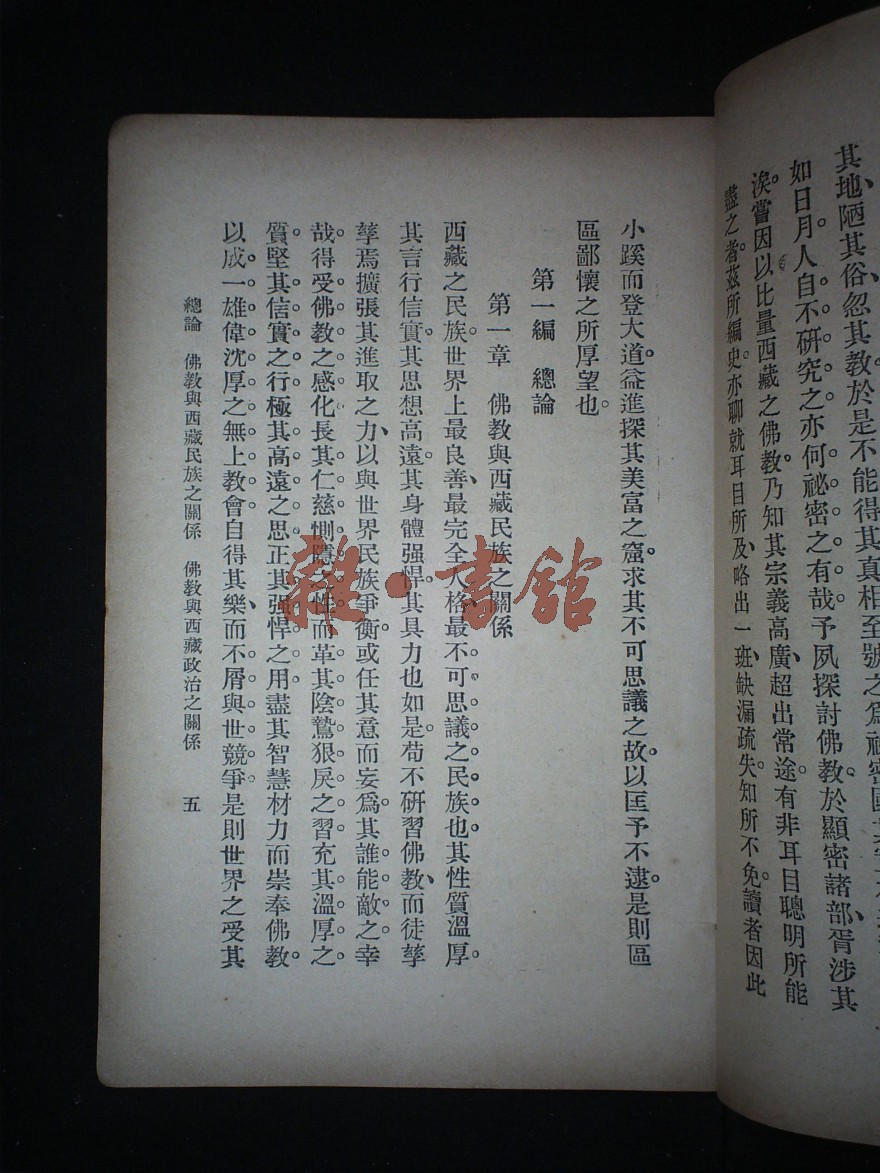 其地、陋其俗、忽其教。於是不能得其真相。至號之爲祕密國
如日月。人自不研究之。亦何祕密之有哉。予夙探討佛教。於顯密諸部、胥涉其
涘。嘗因以比量西藏之佛教。乃知其宗義高廣、超出常途。有非耳目聰明所能
盡之者。茲所編史。亦聊就耳目所及、略出一班。缺漏疏失、知所不免。讀者因此
小蹊而登大道。益進探其美富之窟。求其不可思議之故。以匡予不逮。是則區
區鄙懷之所厚望也。
第一編　總論
第一章　佛教與西藏民族之關係
西藏之民族。世界上最良善、最完全人格、最不可思議之民族也。其性質溫厚。
其言行信實。其思想高遠。其身體强悍。其具力也如是。苟不研習佛教、而徒孳
孳焉擴張其進取之力、以與世界民族爭衡。或任其意而妄爲。其誰能敵之。幸
哉得受佛教之感化。長其仁慈惻隱之性。而革其陰鷙狠戾之習。充其溫厚之
質。堅其信實之行。極其高遠之思。正其强悍之用。盡其智慧材力而崇奉佛教。
以成一雄偉沈厚之無上教會。自得其樂、而不屑與世競爭。是則世界之受其
總論　佛教與西藏民族之關係　佛教與西藏政治之關係　五
雜·書館